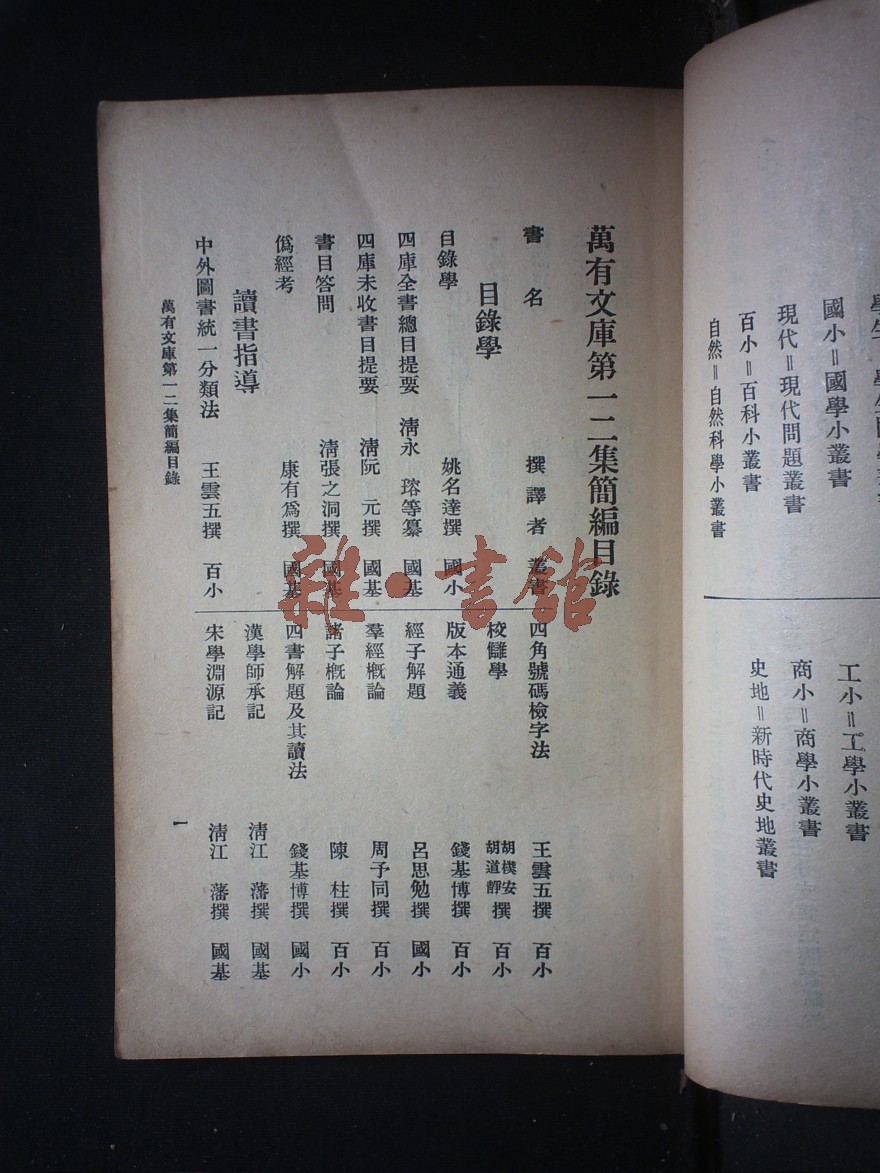 國小＝國學小叢書
現代＝現代問題叢書
百小＝百科小叢書
自然＝自然科學小叢書
工小＝工學小叢書
商小＝商學小叢書
史地＝新時代史地叢書
萬有文庫第一二集簡編目錄
書名 撰譯者 叢書
目錄學
目錄學 姚名達撰 國小
四庫全書總目提要 清永瑢等纂 國基
四庫未收書目提要 清阮元撰 國基
書目答問 清張之洞撰 國基
僞經考 康有爲撰 國基
讀書指導
中外圖書統一分類法 王雲五撰 百小
四角號碼檢字法 王雲五撰 百小
校讎學 胡樸安 胡道靜撰 百小
版本通義 錢基博撰 百小
經子解題 呂思勉撰 國小
羣經概論 周予同撰 百小
諸子概論 陳柱撰 百小
四書解題及其讀法 錢基博撰 國小
漢學師承記 清江藩撰 國基
宋學淵源記 清江藩撰 國基
萬有文庫第一二集簡編目錄
一
雜·書館